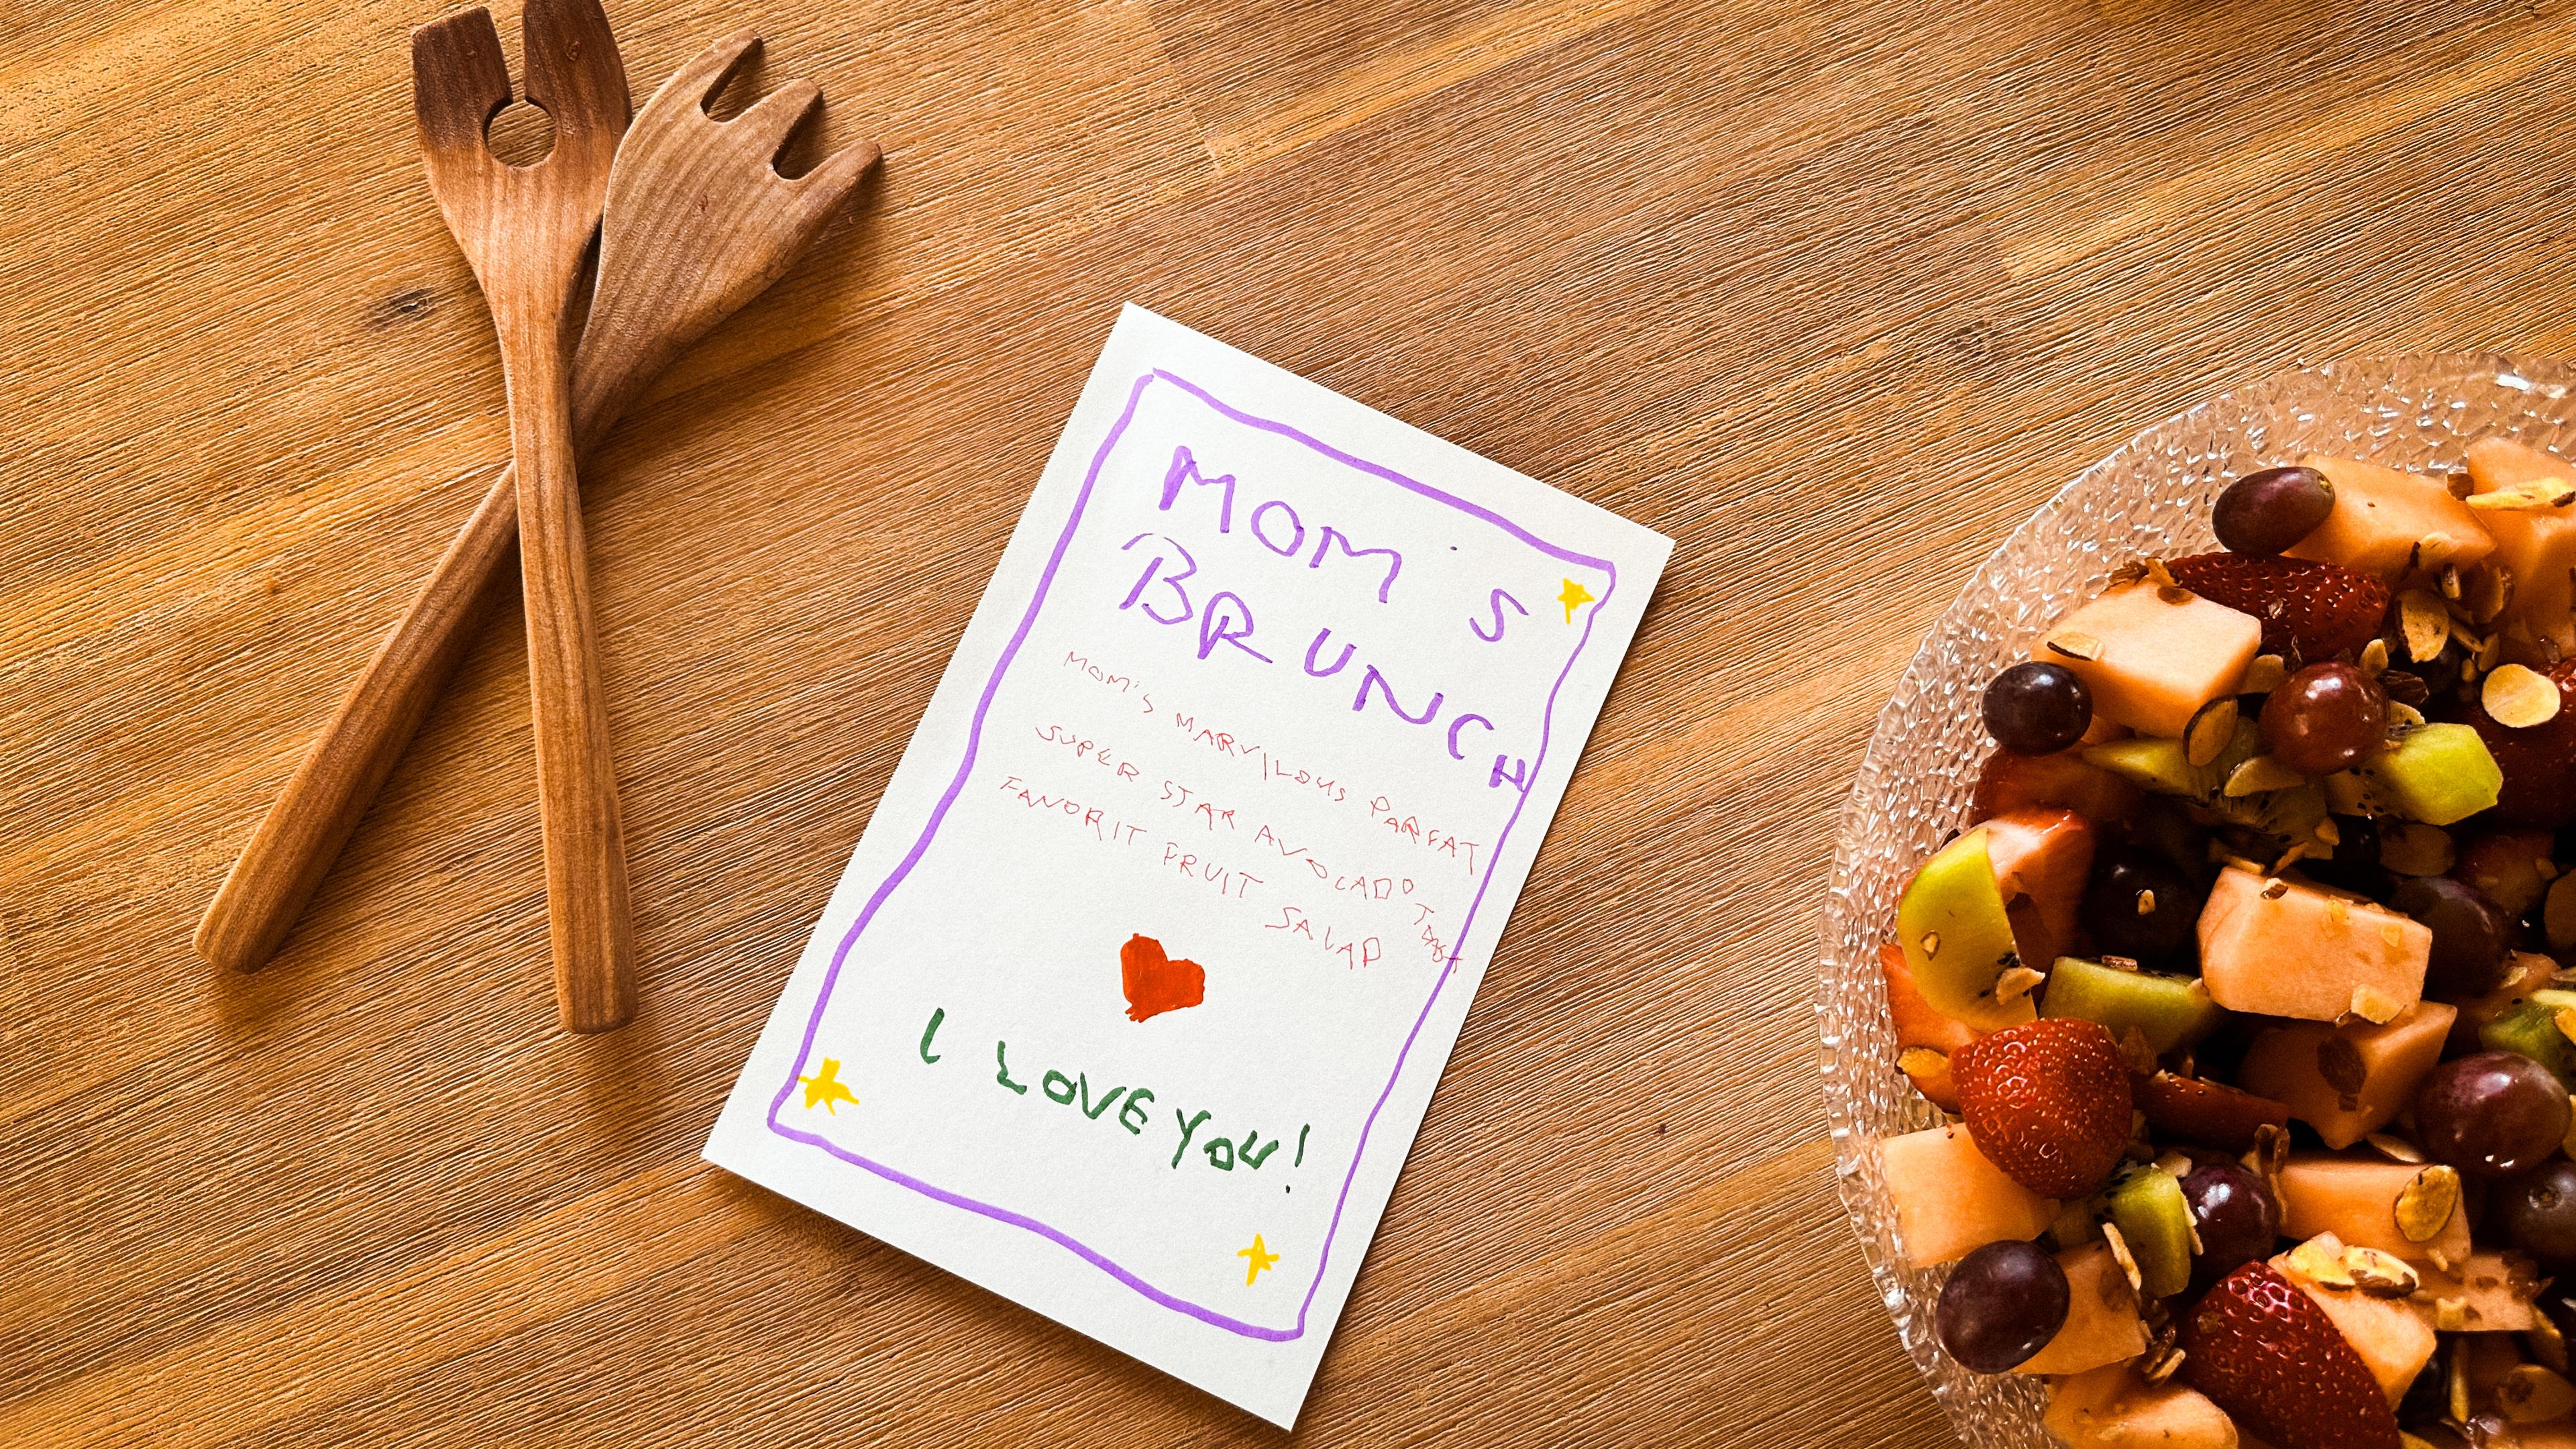 MOM'S
BRUNCH
MOM'S MARVILOUS PARFAT
SUPER STAR AVOCADO TOAST
FAVORIT FRUIT SALAD
I LOVE YOU!